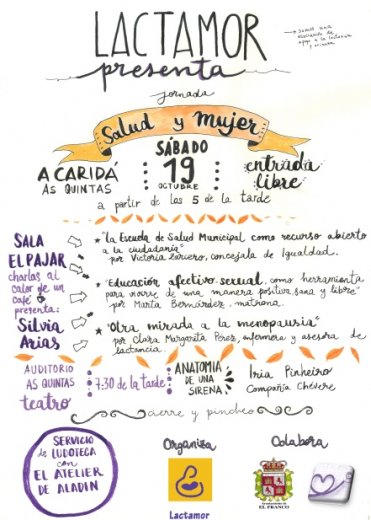 LACTAMOR
presenta
→ somos una
asociación de
apoyo a la lactancia
y crianza
jornada
Salud y mujer
A CARIDÁ
AS QUINTAS
SÁBADO
19
OCTUBRE
entrada
libre
a partir de las 5 de la tarde
SALA
EL PAJAR
charlas al
calor de un
café
presenta:
Silvia
Arias
* "la Escuela de Salud Municipal como recurso abierto
a la ciudadanía"
por Victoria Zarcero, concejala de Igualdad.
* "Educación afectivo sexual, como herramienta
para vivirse de una manera positiva, sana y libre"
por Marta Bernárdez, matrona.
* "Otra mirada a la menopausia"
por Clara Margarita Pérez, enfermera y asesora de
lactancia.
AUDITORIO
AS QUINTAS
teatro
7:30 de la tarde
ANATOMIA
DE UNA
SIRENA
Iria Pinheiro
Compañía Chévere
cierre y pincheo
SERVICIO
de LUDOTECA
con
EL ATELIER
DE ALADIN
Organiza
Lactamor
Colabora
EL FRANCO